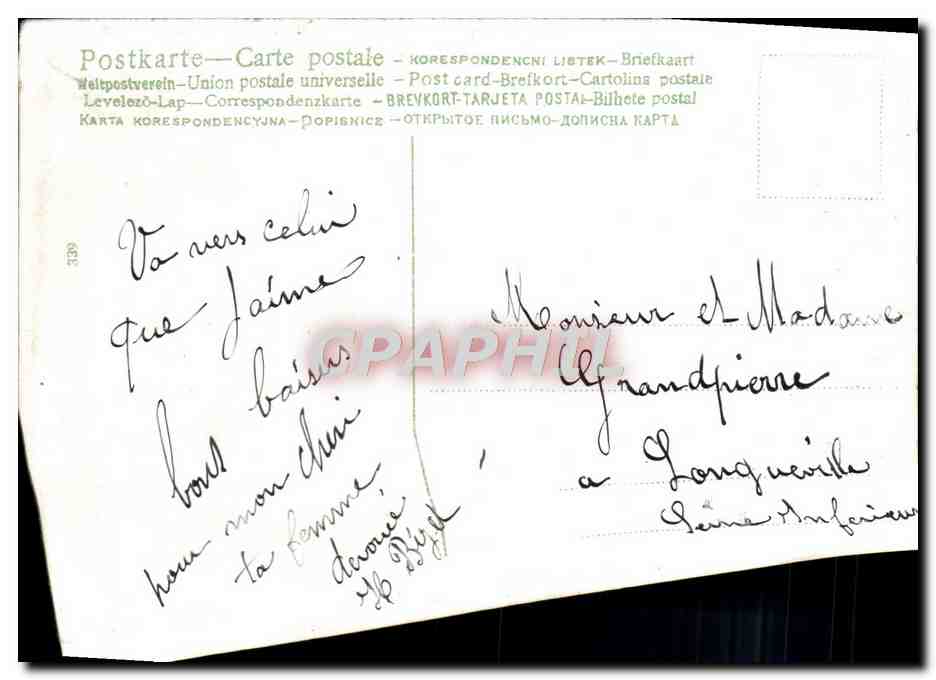 Postkarte — Carte postale - KORESPONDENCNI LISTEK - Briefkaart
Weltpostverein - Union postale universelle - Post card - Brefkort - Cartolina postale
Levelező-Lap - Correspondenzkarte - BREVKORT - TARJETA POSTAL - Bilhete postal
KARTA KORESPONDENCYJNA - DOPISNICE - ОТКРЫТОЕ ПИСЬМО - ДОПИСНА КАРТА
339
Va vers celui
que J'aime
bons baisers
pour mon chéri
ta femme
dévouée
H Bizet
CPAPHIL
Monsieur et Madame
Grandpierre
a Longueville
Seine Inferieur